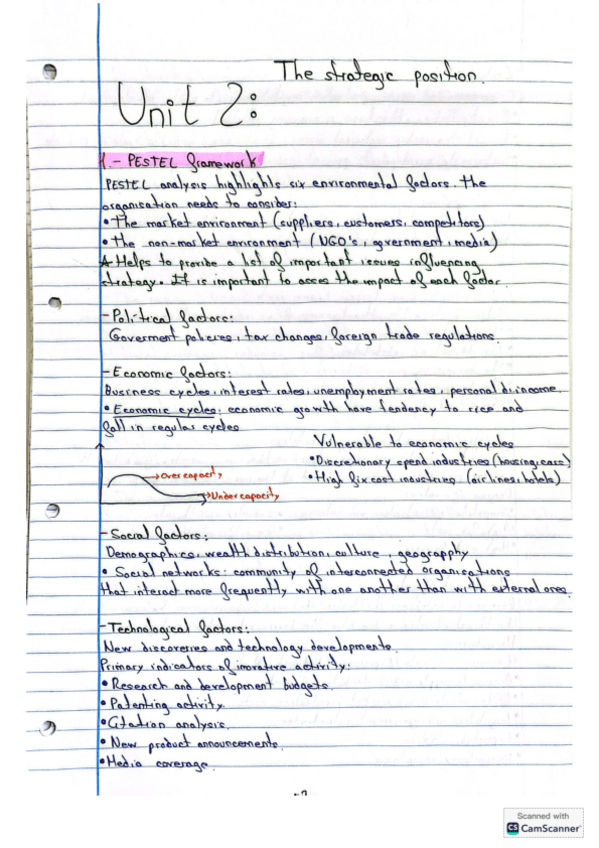 The strategic position.
Unit 2:
1.- PESTEL framework
PESTEL analysis highlights six environmental factors. The
organisation needs to consider:
• The market environment (suppliers, customers, competitors)
• The non-market environment (NGO's, government, media)
Helps to provide a list of important issues influencing
strategy. It is important to acces the impact of each factor.
- Political factors:
Goverment policies, tax changes, foreign trade regulations.
- Economic factors:
Business cycles, interest rates, unemployment rates, personal di.income.
• Economic cycles: economic growth have tendency to rice and
fall in regular cycles
Vulnerable to economic cycles
• Discretionary spend industries (housing, cars)
• High fix cost industries (airlines, hotels)
Over capacity
Under capacity
- Social factors:
Demographics, wealth distribution, culture, geographhy
• Social networks: community of interconnected organisations
that interact more frequently with one another than with external ones.
- Technological factors:
New discoveries and technology developments.
Primary indicators of inovative activity:
• Research and development budgets.
• Patenting activity.
• Citation analysis.
• New product announcements.
• Media coverage.
Scanned with
CS CamScanner